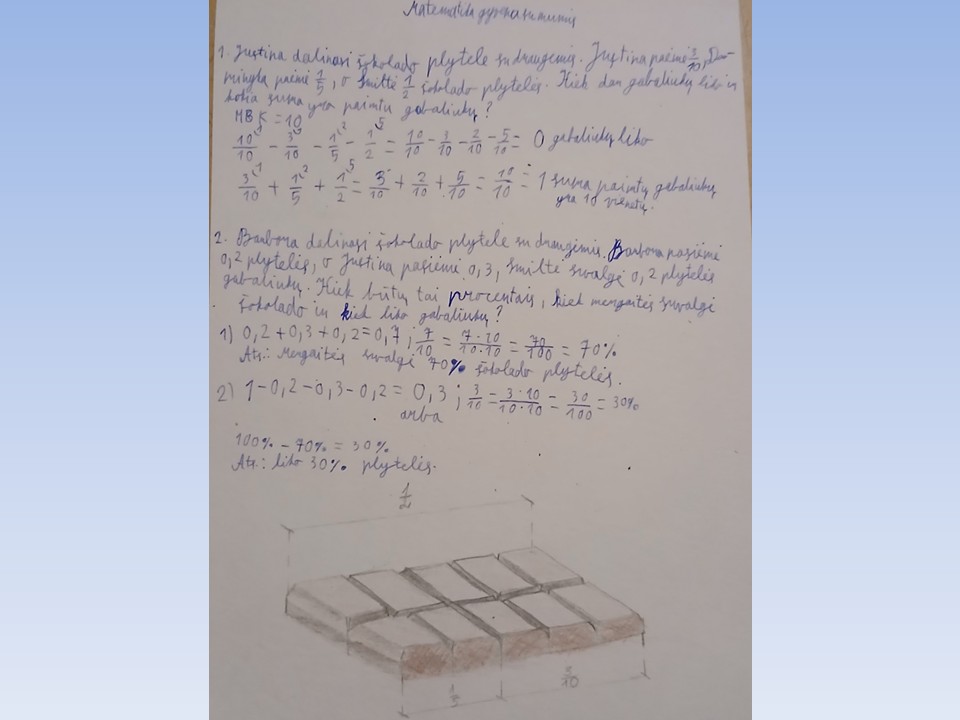 Matematika gyvenamumis
1. Justina dalinasi šokolado plytele su draugėmis. Justina paėmė 3/10, Do-
mingtą paėmė 1/5, o Smiltė 1/2 šokolado plytelės. Kiek dar gabaliukų liko ir
kokia suma yra paimtų gabaliukų?
MBK = 10
10/10 - 3/10 - 1/5 - 1/2 = 10/10 - 3/10 - 2/10 - 5/10 = 0 gabaliukų liko
3/10 + 1/5 + 1/2 = 3/10 + 2/10 + 5/10 = 10/10 = 1 suma paimtų gabaliukų
yra 10 vienetų.
2. Barbora dalinasi šokolado plytele su draugėmis. Barbora pasiėmė
0,2 plytelės, o Justina pasiėmė 0,3, Smiltė suvalgė 0,2 plytelės
gabaliukų. Kiek būtų tai procentais, kiek mergaitės suvalgė
šokolado ir kiek liko gabaliukų?
1) 0,2 + 0,3 + 0,2 = 0,7 ; 7/10 = 7·10/10·10 = 70/100 = 70%
Ats.: Mergaitės suvalgė 70% šokolado plytelės.
2) 1 - 0,2 - 0,3 - 0,2 = 0,3 ; 3/10 = 3·10/10·10 = 30/100 = 30%
arba
100% - 70% = 30%
Ats.: liko 30% plytelės.
1/2
1/5
3/10